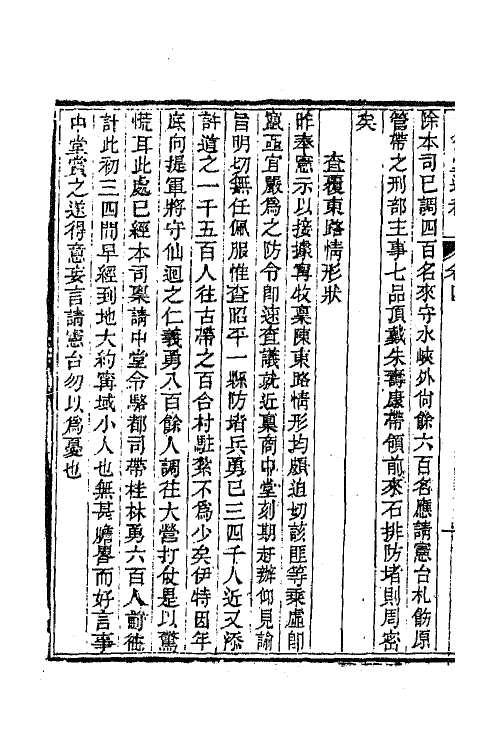 除本司已調四百名來守水峽外尙餘六百名應請憲台札飭原
管帶之刑部主事七品頂戴朱壽康帶領前來石排防堵則周密
矣
查覆東路情形狀
昨奉憲示以接據甯牧稟陳東路情形均頗迫切該匪等乘虛卽
竄亟宜嚴爲之防令卽速查議就近稟商中堂刻期赶辦仰見諭
旨明切無任佩服惟查昭平一縣防堵兵勇已三四千人近又添
許道之一千五百人往古帶之百合村駐紮不爲少矣伊特因年
底向提軍將守仙迴之仁義勇八百餘人調往大營打仗是以驚
慌耳此處已經本司稟請中堂令駱都司帶桂林勇六百人前徃
計此初三四間早經到地大約甯域小人也無甚膽畧而好言事
中堂賞之遂得意妄言請憲台勿以爲憂也